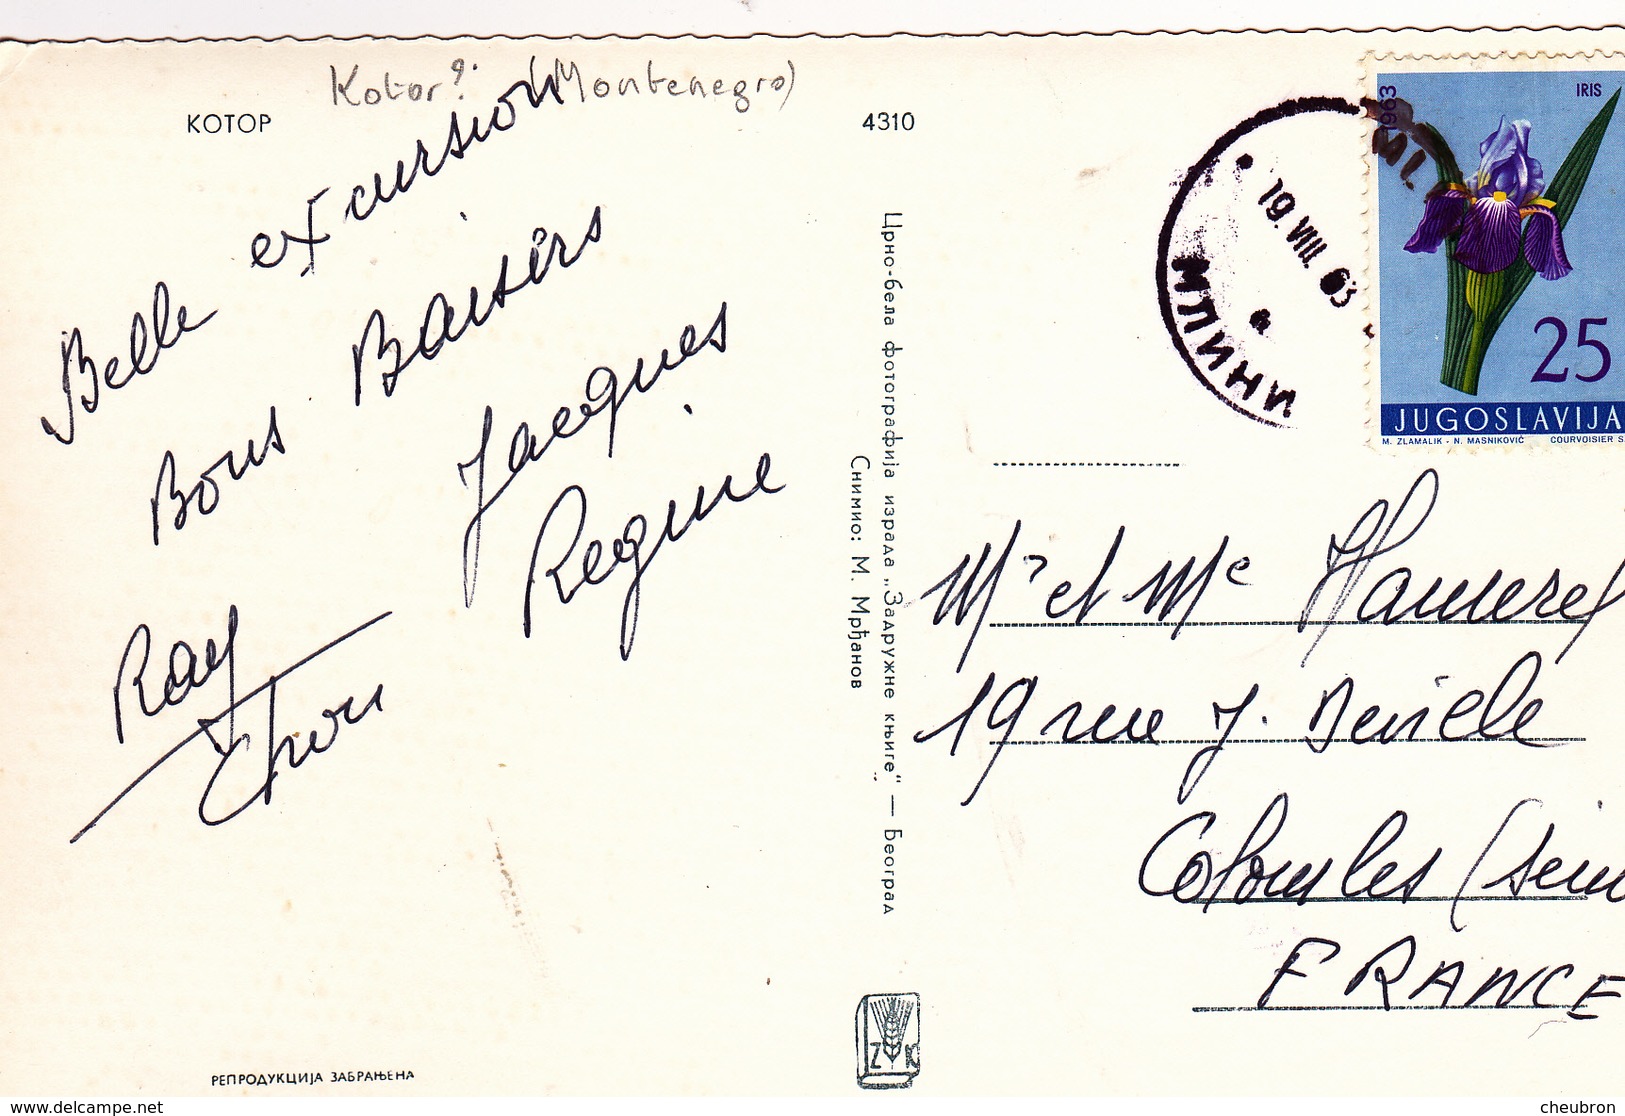 Kotor? (Montenegro)
КОТОР
4310
Belle excursion
Bons Baisers
Jacques
Regine
Ray
РЕПРОДУКЦИЈА ЗАБРАЊЕНА
Црно-бела фотографија израда „Задружне књиге“ — Београд
Снимио: М. Мрђанов
Z K
19. VIII. 63
МЛИНИ
1963
IRIS
25
JUGOSLAVIJA
M. ZLAMALIK - N. MASNIKOVIĆ COURVOISIER S.
Mr et Me
19 rue J.
Colombes (Sein
FRANCE
www.delcampe.net
cheubron